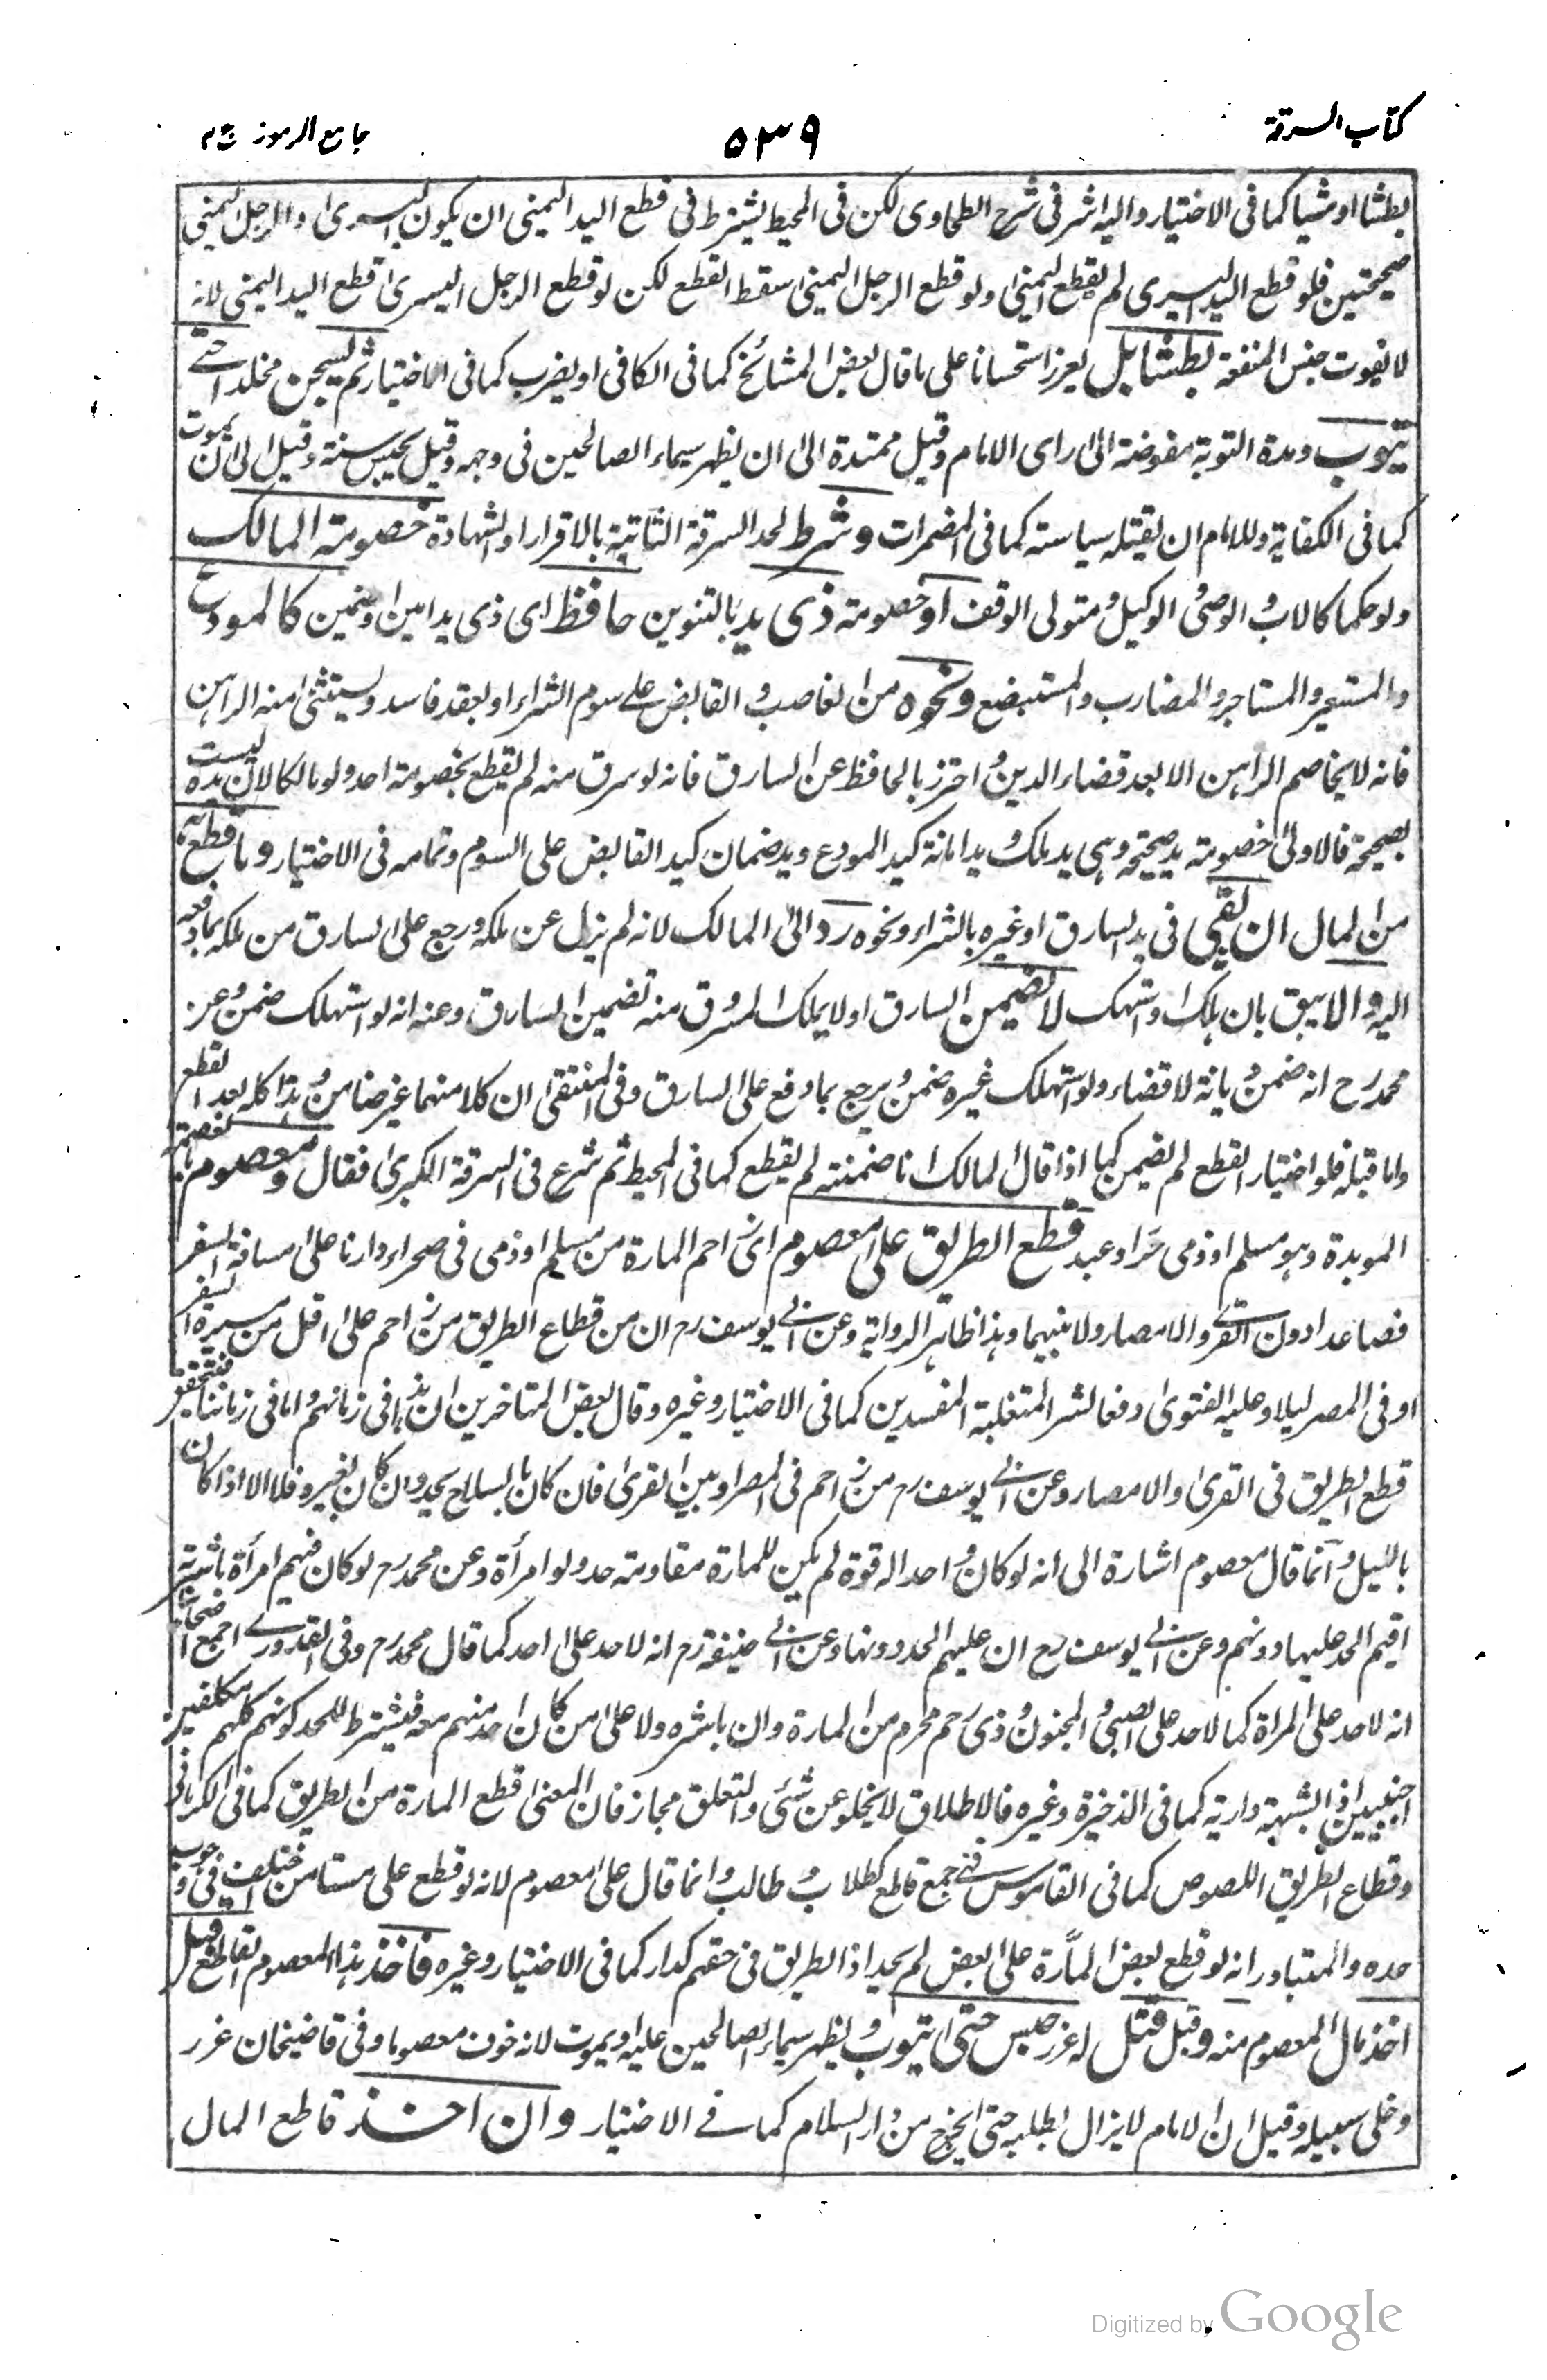 كتاب السرقة
٥٣٩
جامع الرموز ج ٢
بطشا او مشيا كما فى الاختيار واليه اشر فى شرح الطحاوى لكن فى المحيط يشترط فى قطع اليد اليمنى ان يكون اليسرى والرجل اليمنى
صحيحتين فلو قطع اليد اليسرى لم يقطع اليمنى ولو قطع الرجل اليمنى سقط القطع لكن لو قطع الرجل اليسرى قطع اليد اليمنى لانه
لا يفوت جنس المنفعة بطشا بل يعزر استحسانا على ما قال بعض المشائخ كما فى الكافى او يضرب كما فى الاختيار ثم يسجن مخلدا حتے
يتوب ومدة التوبة مفوضة الى راى الامام وقيل ممتدة الى ان يظهر سيماء الصالحين فى وجهه وقيل يحبس سنة وقيل الى ان يموت
كما فى الكفاية وللامام ان يقتله سياسة كما فى المضمرات وشرط لحد السرقة الثابتة بالاقرار او الشهادة خصومة المالك
ولو حكما كالاب والوصى والوكيل ومتولى الوقف او خصومة ذى يد بالتنوين حافظ اى ذى يد امين او ضمين كالمودع
والمستعير والمستاجر والمضارب والمستبضع ونحوه من الغاصب والقابض علے سوم الشراء او بعقد فاسد ويستثنى منه الراهن
فانه لا يخاصم الراهن الا بعد قضاء الدين واحترز بالحافظ عن السارق فانه لو سرق منه لم يقطع بخصومة احد ولو مالكا لان يده ليست
بصحيحة فالاولى خصومة يد صحيحة وهى يد ملك ويد امانة كيد المودع ويد ضمان كيد القابض على السوم وتمامه فى الاختيار وما قطع به
من المال ان بقى فى يد السارق او غيره بالشراء ونحوه رد الى المالك لانه لم يزل عن ملكه ورجع على السارق من ملكه بما دفعه
اليه والا يبق بان هلك او استهلك لا يضمن السارق او لا يملك المسروق منه تضمين السارق وعنه انه لو استهلك ضمن وعن
محمد رح انه ضمن ديانة لا قضاء ولو استهلك غيره ضمن ويرجع بما دفع على السارق وفى المنتقى ان كلا منهما غير ضامن وهذا كله بعد القطع
واما قبله فلو اختيار القطع لم يضمن كما اذا قال المالك انا ضمنته لم يقطع كما فى المحيط ثم شرع فى السرقة الكبرى فقال ومعصوم بالعصمة
الموبدة وهو مسلم او ذمى حرا وعبد قطع الطريق على معصوم اى زاحم المارة من مسلم او ذمى فى صحراء دارنا على مسافة السفر
فصاعدا دون القرے والامصار ولا بينهما وهذا ظاهر الرواية وعن ابى يوسف رح ان من قطاع الطريق من زاحم على اقل من مسيرة السفر
او فى المصر ليلا وعليه الفتوى دفعا لشر المتغلبة المفسدين كما فى الاختيار وغيره وقال بعض المتاخرين ان هذا فى زمانهم واما فى زماننا فيتحقق
قطع الطريق فى القرى والامصار وعن ابى يوسف رح من زاحم فى المصر او بين القرى فان كان بالسلاح يحد وان كان بغيره فلا الا اذا كان
بالليل وانما قال معصوم اشارة الى انه لو كان واحدا له قوة لم يكن للمارة مقاومته حد ولو امرأة وعن محمد رح لو كان فيهم امرأة باشرته
اقيم الحد عليها دونهم وعن ابى يوسف رح ان عليهم الحد دونها وعن ابى حنيفة رح انه لا حد على احد كما قال محمد رح وفى القدورے اجمع اصحابنا
انه لا حد على المراة كما لا حد على الصبى والمجنون وذى رحم محرم من المارة وان باشره ولا على من كان احد منهم معه فيشترط للحد كونهم كلهم مكلفين
اجنبيين اذ الشبهة دارية كما فى الذخيرة وغيره فالاطلاق لا يخلو عن شئى والتعلق مجاز فان المعنى قطع المارة من الطريق كما فى الكرمانى
وقطاع الطريق اللصوص كما فى القاموس فهے جمع قاطع كطلاب وطالب وانما قال على معصوم لانه لو قطع على مستامن اختلف فى وجوب
حده والمتبادر انه لو قطع بعض المارة على البعض لم يحد اذ الطريق فى حقهم كدار كما فى الاختيار وغيره فاخذ هذا المعصوم القاطع قبل
اخذ مال المعصوم منه وقبل قتل له عزر حبس حتى يتوب ويظهر سيماء الصالحين عليه او يموت لانه خوف معصوما وفى قاضيخان عزر
وخلى سبيله وقيل ان الامام لا يزال يطلبه حتى يخرج من دار السلام كما فے الاختيار وان اخذ قاطع المال
Digitized by Google